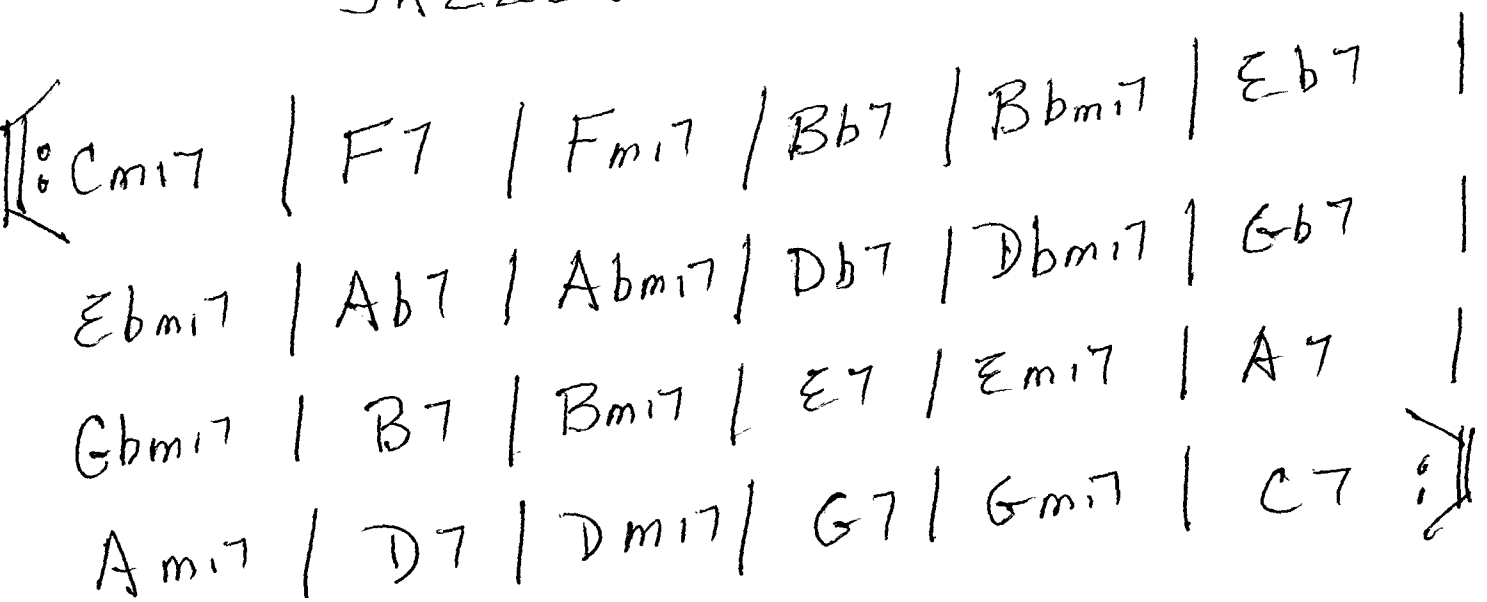 ||: Cmi7 | F7 | Fmi7 | Bb7 | Bbmi7 | Eb7 |
Ebmi7 | Ab7 | Abmi7 | Db7 | Dbmi7 | Gb7 |
Gbmi7 | B7 | Bmi7 | E7 | Emi7 | A7 |
Ami7 | D7 | Dmi7 | G7 | Gmi7 | C7 :||